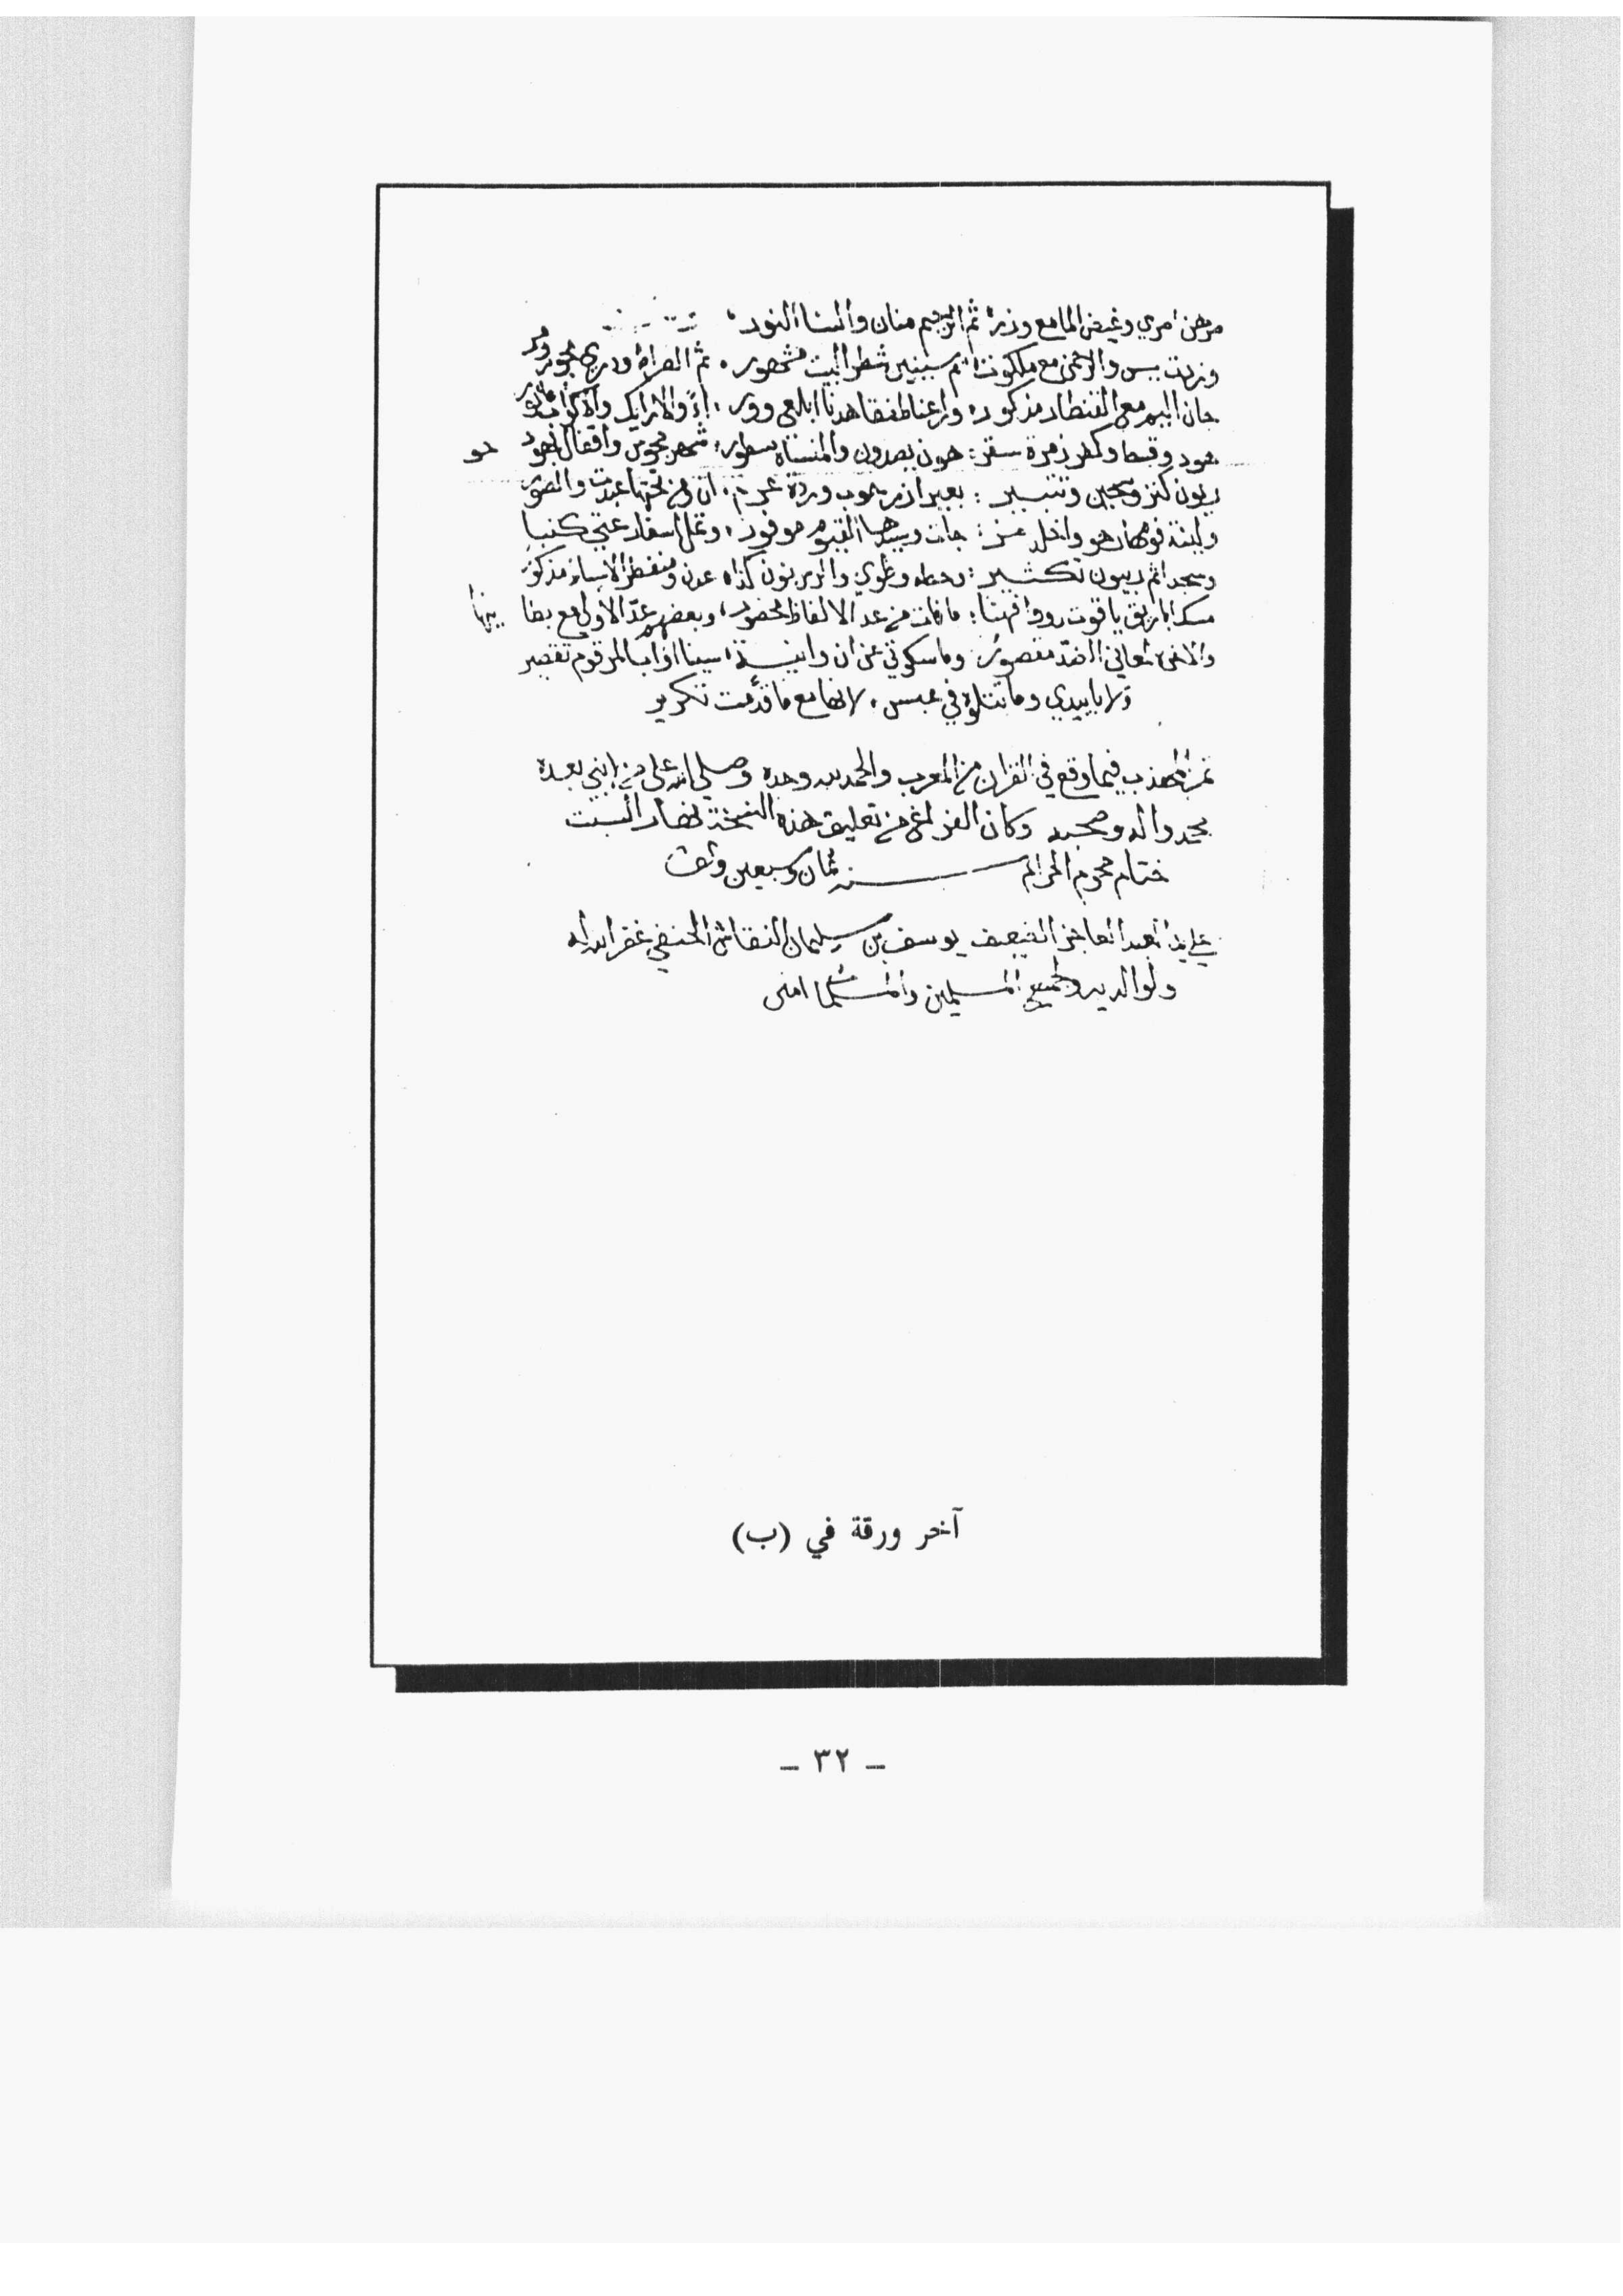 صرهن امري وغيض الما مع وزر ثم الرجيم مناص والسنا النور
وزدت يس والرحمن مع ملكوت ثم سينين شطر البيت مشهور ثم الصراط ودري
مع القنطار مذكور وراعنا طفقا هدنا ابلعي وورا والارايك والاكواب
هود وقسط وكفر زمرة سقر هون يصدون والمنساة مسطور شهر مجوس واقفال يهود
كنز وسجين وتتبير بعير ازر حوب وردة عرم ومن تحتها عبدت والصور
ولينة فومها رهو واخلد مزجاة وسيدها القيوم موفور وقمل اسفار عنى كتبا
وسجدا ثم ربيون تكثير وحطة وطوى والرس نون كذا عدن ومنفطر الاسباط مذكور
مسك اباريق ياقوت رووا فهنا ما فات من عدد الالفاظ محصور وبعضهم عد الاولى مع بطائنها
والاخرة لمعاني الضد مقصور وما سكوتي عن ان وانية سينا اواب المرقوم تقصير
ولا بايدي وما يتلوه في عبس لانها مع ما قدمت تكرير
تم المهذب فيما وقع في القران من المعرب والحمد لله وحده وصلى الله على من لا نبي بعده
محمد واله وصحبه وكان الفراغ من تعليق هذه النسخة نهار السبت
ختام محرم الحرام سنة ثمان وسبعين
على يد العبد العاجز الضعيف يوسف بن سليمان النقاش الحنفي غفر الله له
ولوالديه ولجميع المسلمين والمسلمات امين
آخر ورقة في (ب)
– ٣٢ –